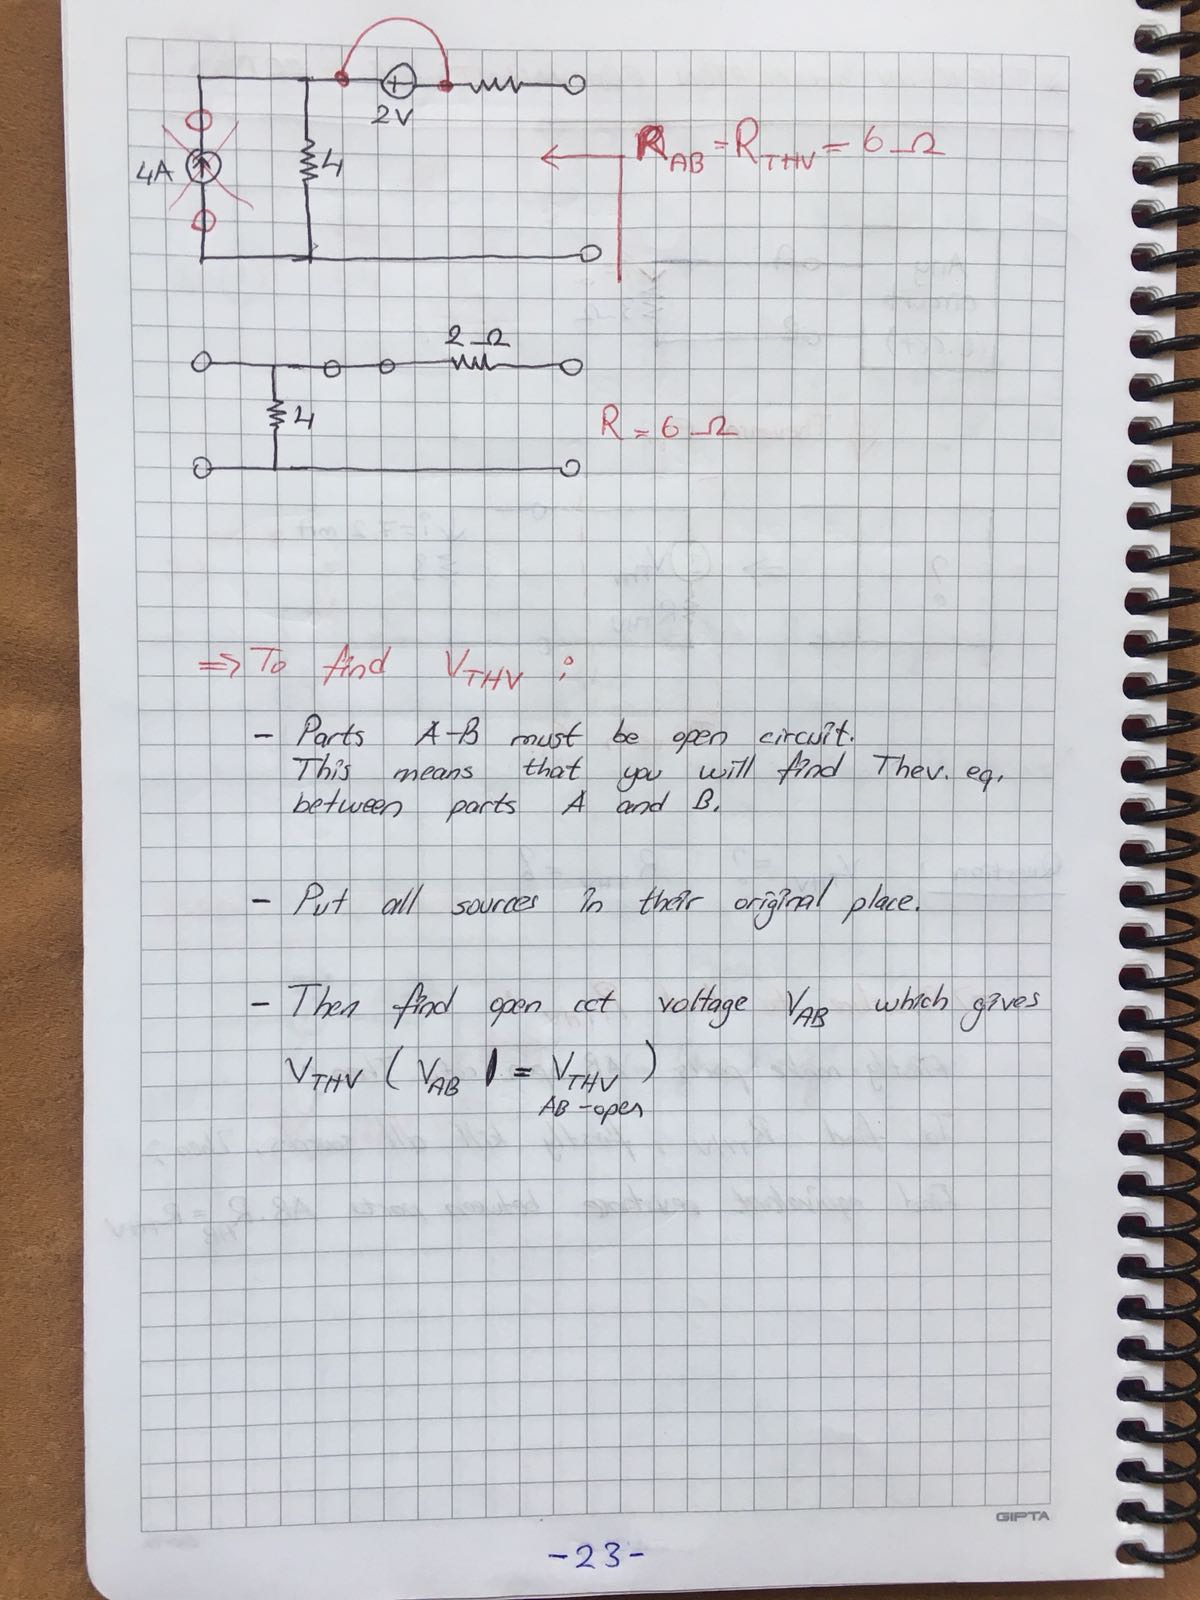 2V
4A
4
R_AB = R_THV = 6 Ω
2 Ω
4
R = 6 Ω
⇒ To find V_THV :
- Parts A-B must be open circuit.
This means that you will find Thev. eq.
between parts A and B.
- Put all sources in their original place.
- Then find open cct voltage V_AB which gives
V_THV ( V_AB | = V_THV )
AB-open
GIPTA
-23-